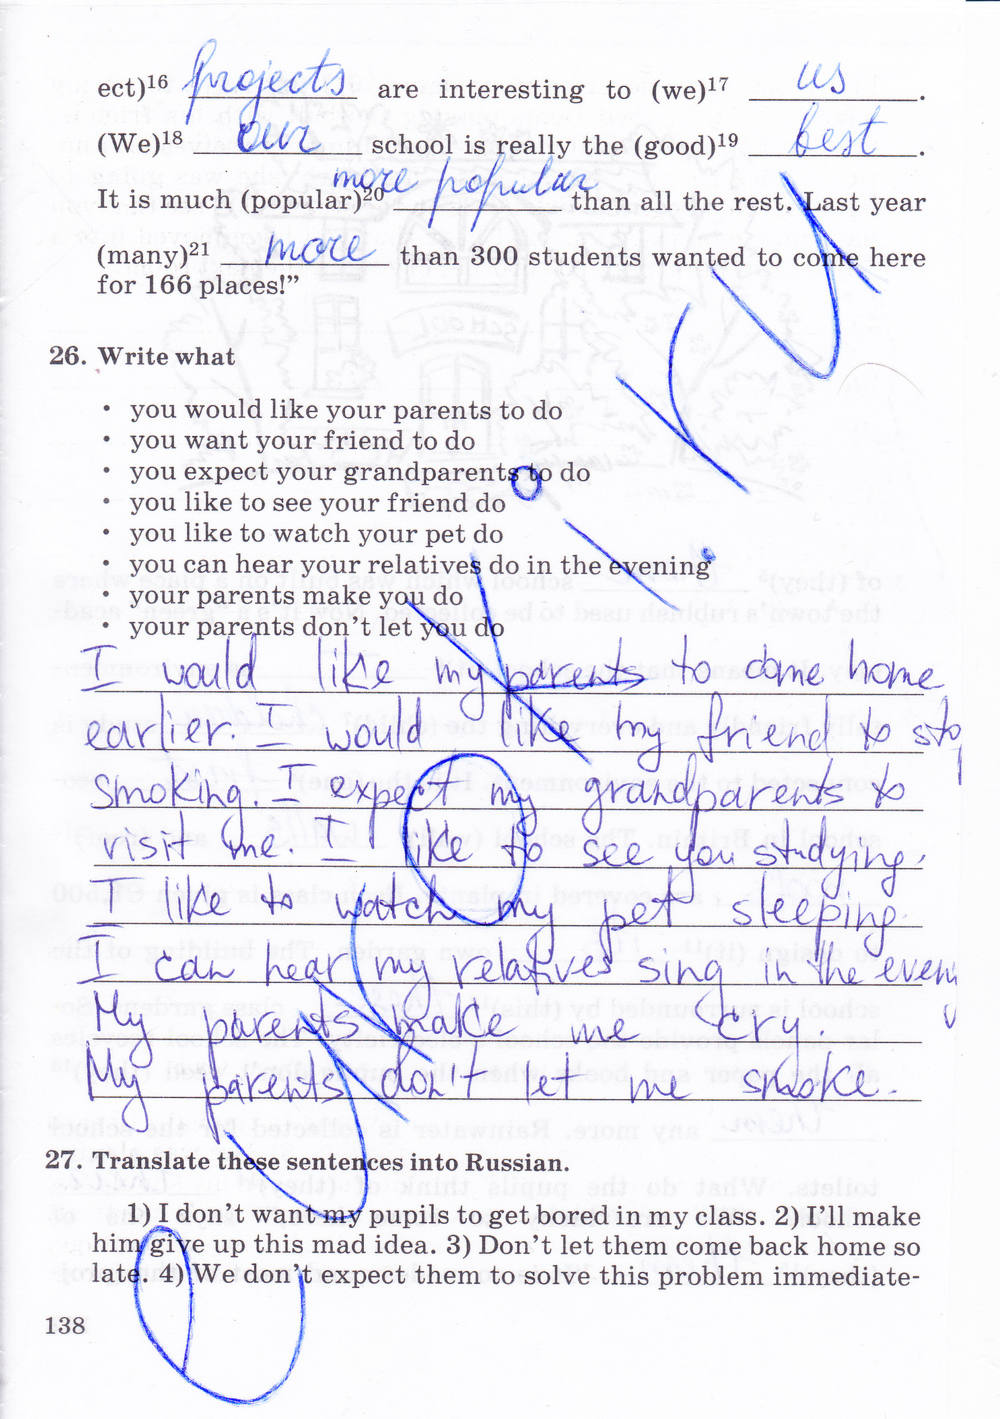 ect)16 projects are interesting to (we)17 us.
(We)18 our school is really the (good)19 best.
It is much (popular)20 more popular than all the rest. Last year
(many)21 more than 300 students wanted to come here
for 166 places!”
26. Write what
• you would like your parents to do
• you want your friend to do
• you expect your grandparents to do
• you like to see your friend do
• you like to watch your pet do
• you can hear your relatives do in the evening
• your parents make you do
• your parents don’t let you do
I would like my parents to come home
earlier. I would like my friend to stop
smoking. I expect my grandparents to
visit me. I like to see you studying.
I like to watch my pet sleeping.
I can hear my relatives sing in the even
My parents make me cry.
My parents don't let me smoke.
27. Translate these sentences into Russian.
1) I don’t want my pupils to get bored in my class. 2) I’ll make
him give up this mad idea. 3) Don’t let them come back home so
late. 4) We don’t expect them to solve this problem immediate-
138